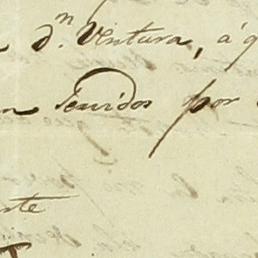 dn. Ventura, á q
n Tenidos por
rte